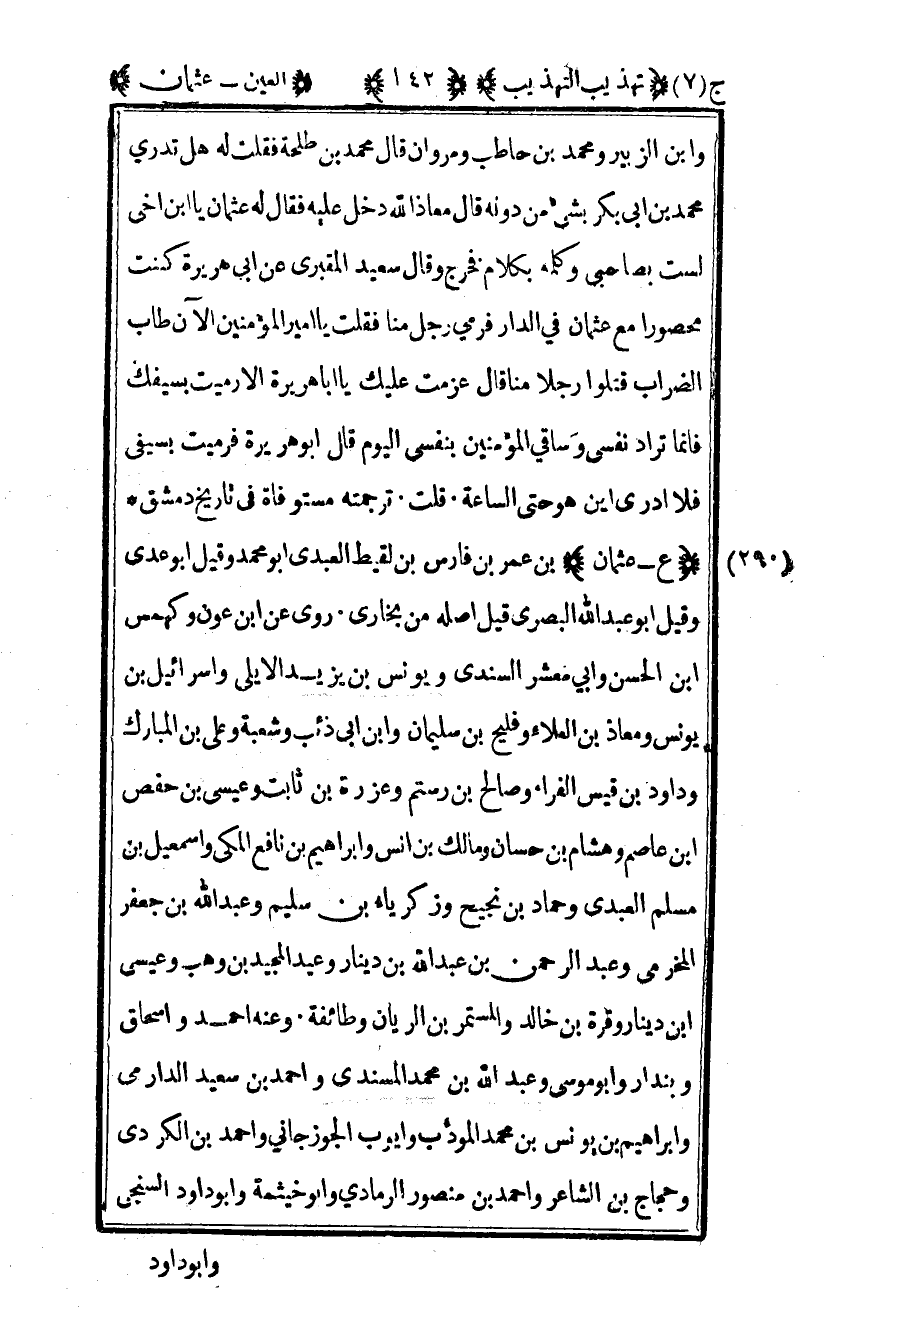 ج(٧) ﴿ تهذيب التهذيب ﴾ ﴿ ١٤٢ ﴾ ﴿ العين ـ عثمان ﴾
وابن الزبير ومحمد بن حاطب ومروان قال محمد بن طلحة فقلت له هل تدري
محمد بن ابى بكر بشئ من دونه قال معاذ الله دخل عليه فقال له عثمان يا ابن اخى
لست بصاحبي وكلمه بكلام فخرج وقال سعيد المقبرى عن ابى هريرة كنت
محصورا مع عثمان في الدار فرمي رجل منا فقلت يا امير المؤمنين الآن طاب
الضراب قتلوا رجلا منا قال عزمت عليك يا ابا هريرة الا رميت بسيفك
فانما تراد نفسى وساقي المؤمنين بنفسى اليوم قال ابو هريرة فرميت بسيفى
فلا ادرى اين هو حتى الساعة · قلت · ترجمته مستوفاة فى تاريخ دمشق *
(٢٩٠) ﴿ ع ـ عثمان ﴾ بن عمر بن فارس بن لقيط العبدى ابو محمد وقيل ابو عدى
وقيل ابو عبد الله البصرى قيل اصله من بخارى · روى عن ابن عون وكهمس
ابن الحسن وابي معشر السندى و يونس بن يزيـد الايلى واسرائيل بن
يونس ومعاذ بن العلاء وفليح بن سليمان وابن ابى ذئب وشعبة وعلى بن المبارك
وداود بن قيس الفراء وصالح بن رستم وعزرة بن ثابت وعيسى بن حفص
ابن عاصم وهشام بن حسان ومالك بن انس وابراهيم بن نافع المكى واسمعيل بن
مسلم العبدى وحماد بن نجيح وزكرياء بن سليم وعبد الله بن جعفر
المخرمي وعبد الرحمن بن عبد الله بن دينار وعبد المجيد بن وهب وعيسى
ابن دينار وقرة بن خالد والمستمر بن الريان وطائفة · وعنه احمـد و اسحاق
و بندار وابو موسى وعبد الله بن محمد المسندى و احمد بن سعيد الدارمى
وابراهيم بن يونس بن محمد المودأب وايوب الجوزجاني واحمد بن الكردى
وحجاج بن الشاعر واحمد بن منصور الرمادي وابو خيثمة وابو داود السنجى
وابو داود